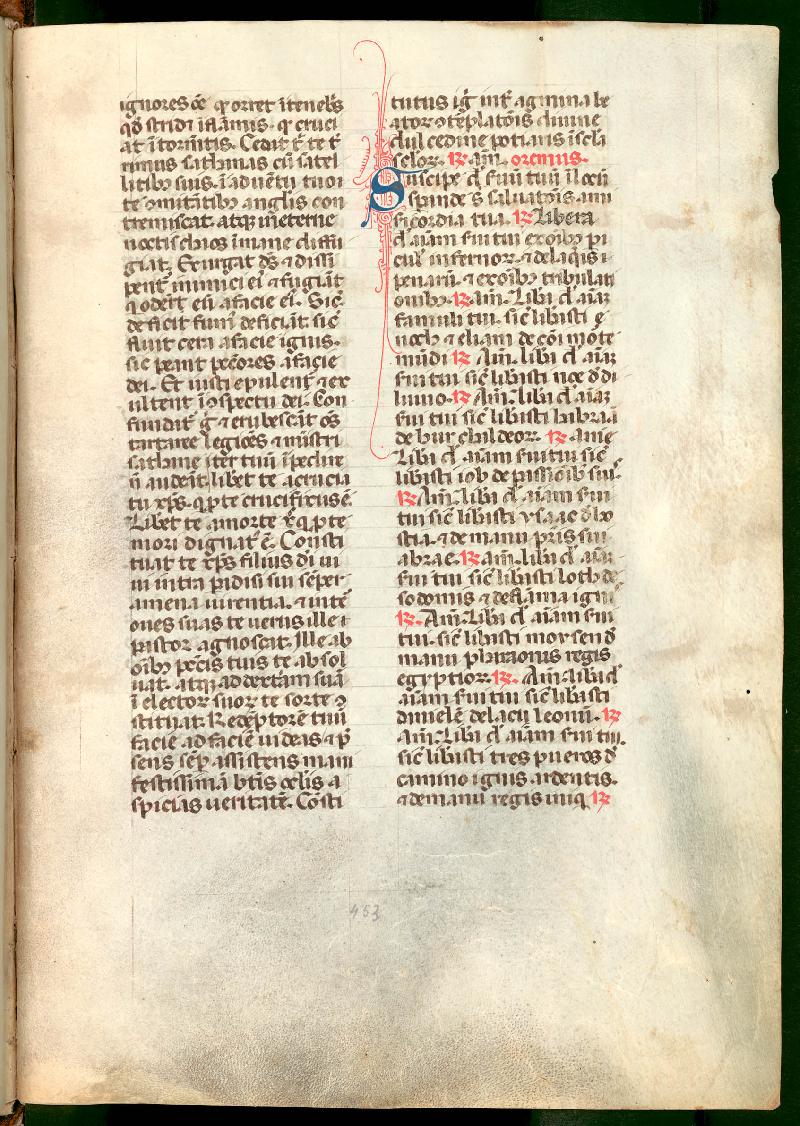 ignores oē qꝫ orret ı̄ tenebꝭs
qd̄ stridı̄ ı̄ flāmis · qꝫ cruci
at ı̄ tormētis. Cedit t̄ te t̄
rimus sathanas cū satel
litibꝫ suis. ı̄ aduētu tuo ı
te comitātibꝫ anglis con
tremiscat. atqꝫ ineterne
noctis chaos ı̄mane diffu
giat. Exurgat dꝰs ⁊ dissi
pent̄ inimici ei ⁊ fugiāt
q oderūt eū afacie eiꝰ. Sic̄
deficit fum̄ deficiāt. sic̄
fluit cera afacie ignis.
sic peant pecc̄ores afacie
dei. Et iusti epulent̄ ⁊ ex
ultent ı̄ cspectu dei. Con
fundāt̄ g̊ ⁊ erubescāt oēs
tartaree legiōes ⁊ mı̄stri
sathane iter tuū ı̄pedire
n̄ audeāt. libet te a crucia
tu xp̄s. q ꝓ te crucifixus ē.
Libet te amorte xp̄c q ꝓ te
mori dignat̄ ē. Consti
tuat te xp̄s filius dı̄ ui
ui intra ꝑadisi sui semper
amena uirentia. ⁊ inter
ones suas te uerus ille ı
pastor agnoscat. Ille ab
oı̄bꝫ pecc̄is tuis te absol
uat. atqꝫ ad dext̄am suā
ı̄ electorꝝ suorꝝ te sorte ꝯ
stituat. Redēptorē tuū
facie ad faciē uideas ⁊ p̄
sens semꝑ assistens mani
festissimā btı̄s oclis a
spicias ueritatē. Cōsti
tutus iḡ int̄ agmina be
atorꝝ ꝯtēplatōis diuine
dulcedine potiaris ı̄ scla
sclorꝝ. R̄ am̄. oremus.
Suscipe d̄ suū tuū ı̄ locū
spande ſ̄ saluatōis ami
sicordia tua. R̄ Libera
d̄ aı̄am sui tui ex oı̄bꝫ pi
cul̄ infernorꝝ. ⁊ de laqꝫis
penarū. ⁊ ex oı̄bꝫ tribulati
onibꝫ. R̄ Am̄. Libā d̄ aı̄aꝫ
famuli tui. sic̄ libasti e
noch ⁊ eliam de cōi morte
mūdi R̄ Am̄. libā d̄ aı̄aꝫ
sui tui sic̄ libasti noe d̄ di
luuio. R̄ Am̄. libā d̄ aı̄aꝫ
sui tui sic̄ libasti habraā
de hur chaldeorꝝ. R̄ ame
Libā d̄ aı̄am sui tui sic̄
libasti iob de passiōibꝫ suis.
R̄ Am̄. libā d̄ aı̄am sui
tui sic̄ libasti ysaac d̄ ho
stia. ⁊ de manu pr̄is sui
abrae. R̄ am̄. libā d̄ aı̄aꝫ
sui tui sic̄ libasti loth de
sodomis ⁊ de flāma ignis
R̄. Am̄. Libā d̄ aı̄am sui
tui. sic̄ libasti moysen d̄
manu pharaonis regis
egyptiorꝝ. R̄. Am̄. libā d̄
aı̄am sui tui sic̄ libasti
danielē de lacu leonū. R̄
Am̄. Libā d̄ aı̄am sui tui.
sic̄ libasti tres pueros d̄
camino ignis ardentis.
⁊ de manu regis iniq R̄
453